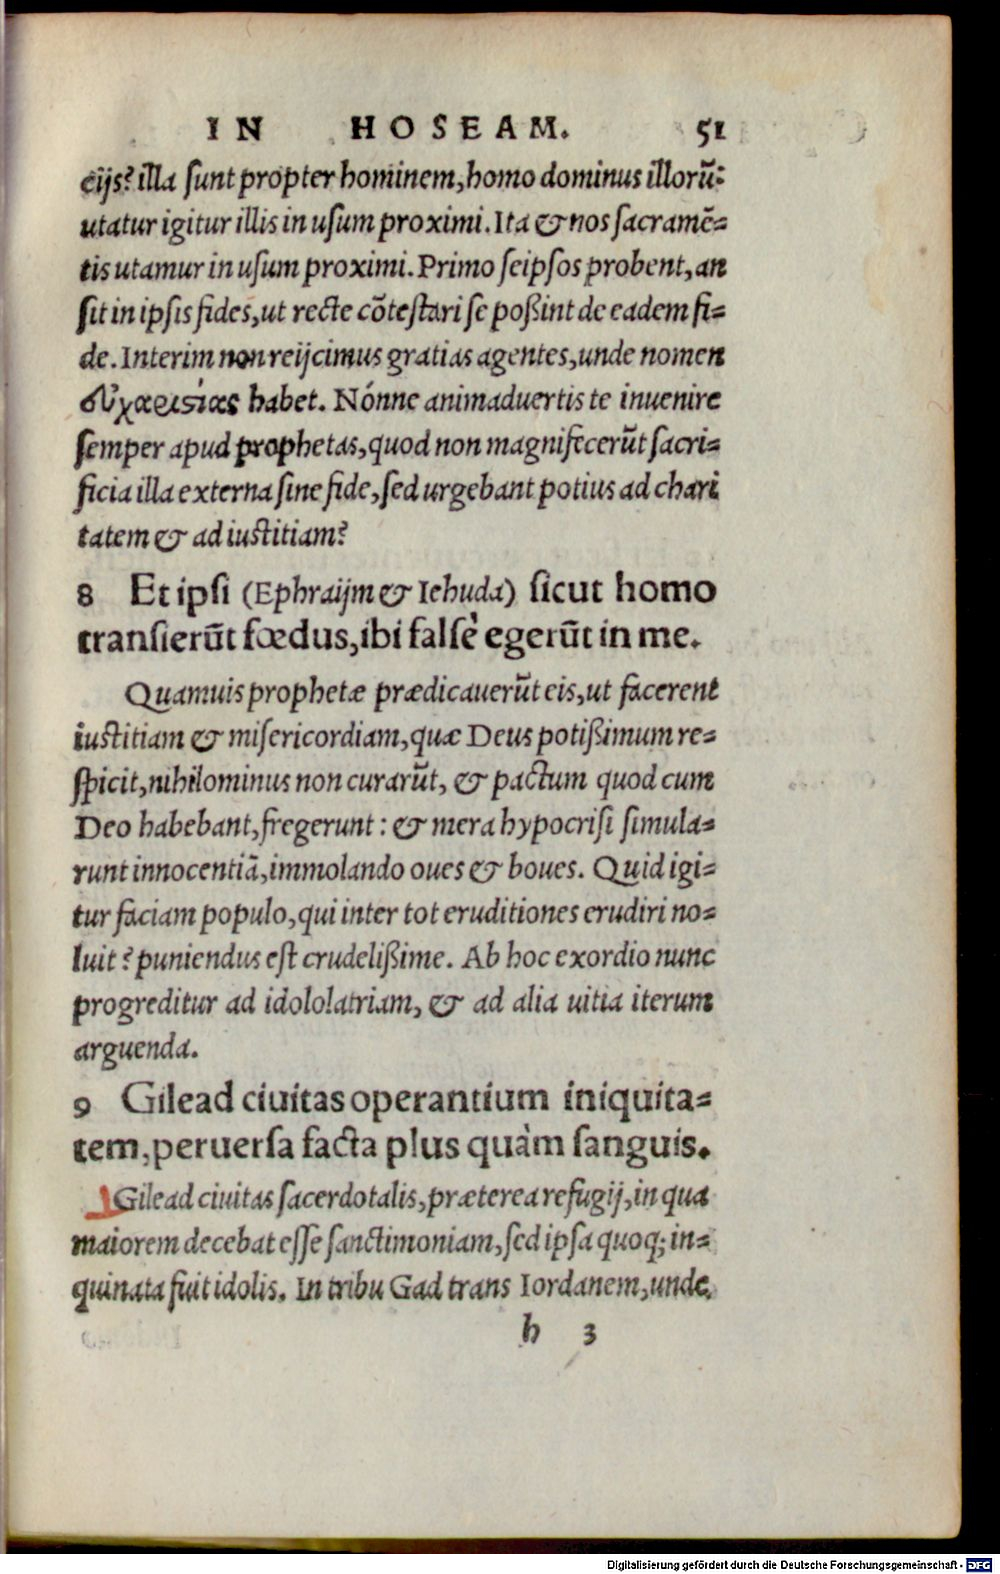 IN HOSEAM. 51
eijs? illa sunt propter hominem, homo dominus illorũ:
utatur igitur illis in usum proximi. Ita & nos sacramẽ=
tis utamur in usum proximi. Primo seipsos probent, an
sit in ipsis fides, ut recte cõtestari se poßint de eadem fi=
de. Interim non reijcimus gratias agentes, unde nomen
εὐχαριστίας habet. Nónne animaduertis te inuenire
semper apud prophetas, quod non magnifecerũt sacri=
ficia illa externa sine fide, sed urgebant potius ad chari
tatem & ad iustitiam?
8 Et ipsi (Ephraijm & Iehuda) sicut homo
transierũt fœdus, ibi falsè egerũt in me.
Quamuis prophetæ prædicauerũt eis, ut facerent
iustitiam & misericordiam, quæ Deus potißimum re=
spicit, nihilominus non curarũt, & pactum quod cum
Deo habebant, fregerunt: & mera hypocrisi simula=
runt innocentiã, immolando oues & boues. Quid igi=
tur faciam populo, qui inter tot eruditiones erudiri no=
luit? puniendus est crudelißime. Ab hoc exordio nunc
progreditur ad idololatriam, & ad alia uitia iterum
arguenda.
9 Gilead ciuitas operantium iniquita=
tem, peruersa facta plus quàm sanguis.
Gilead ciuitas sacerdotalis, præterea refugij, in qua
maiorem decebat esse sanctimoniam, sed ipsa quoq; in=
quinata fuit idolis. In tribu Gad trans Iordanem, unde
h 3
Digitalisierung gefördert durch die Deutsche Forschungsgemeinschaft - DFG